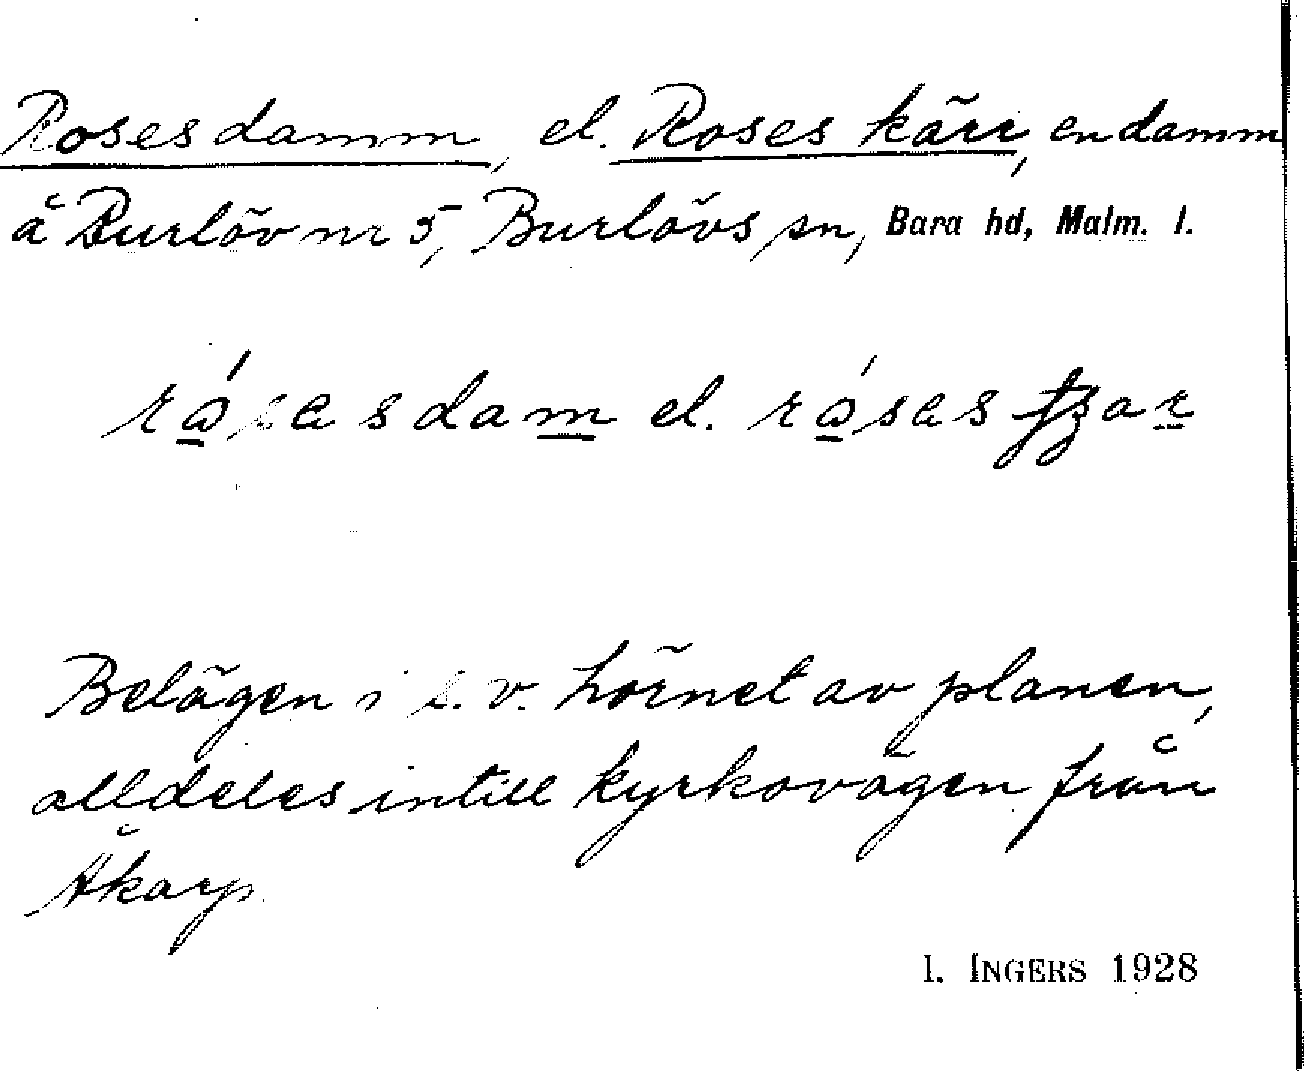 Roses damm, el. Roses kärr, en damm
å Burlöv nr 5, Burlövs sn, Bara hd, Malm. l.
rósesdam el. róses
Belägen i s.v. hörnet av planen,
alldeles intill kyrkovägen från
Åkarp.
I. INGERS 1928